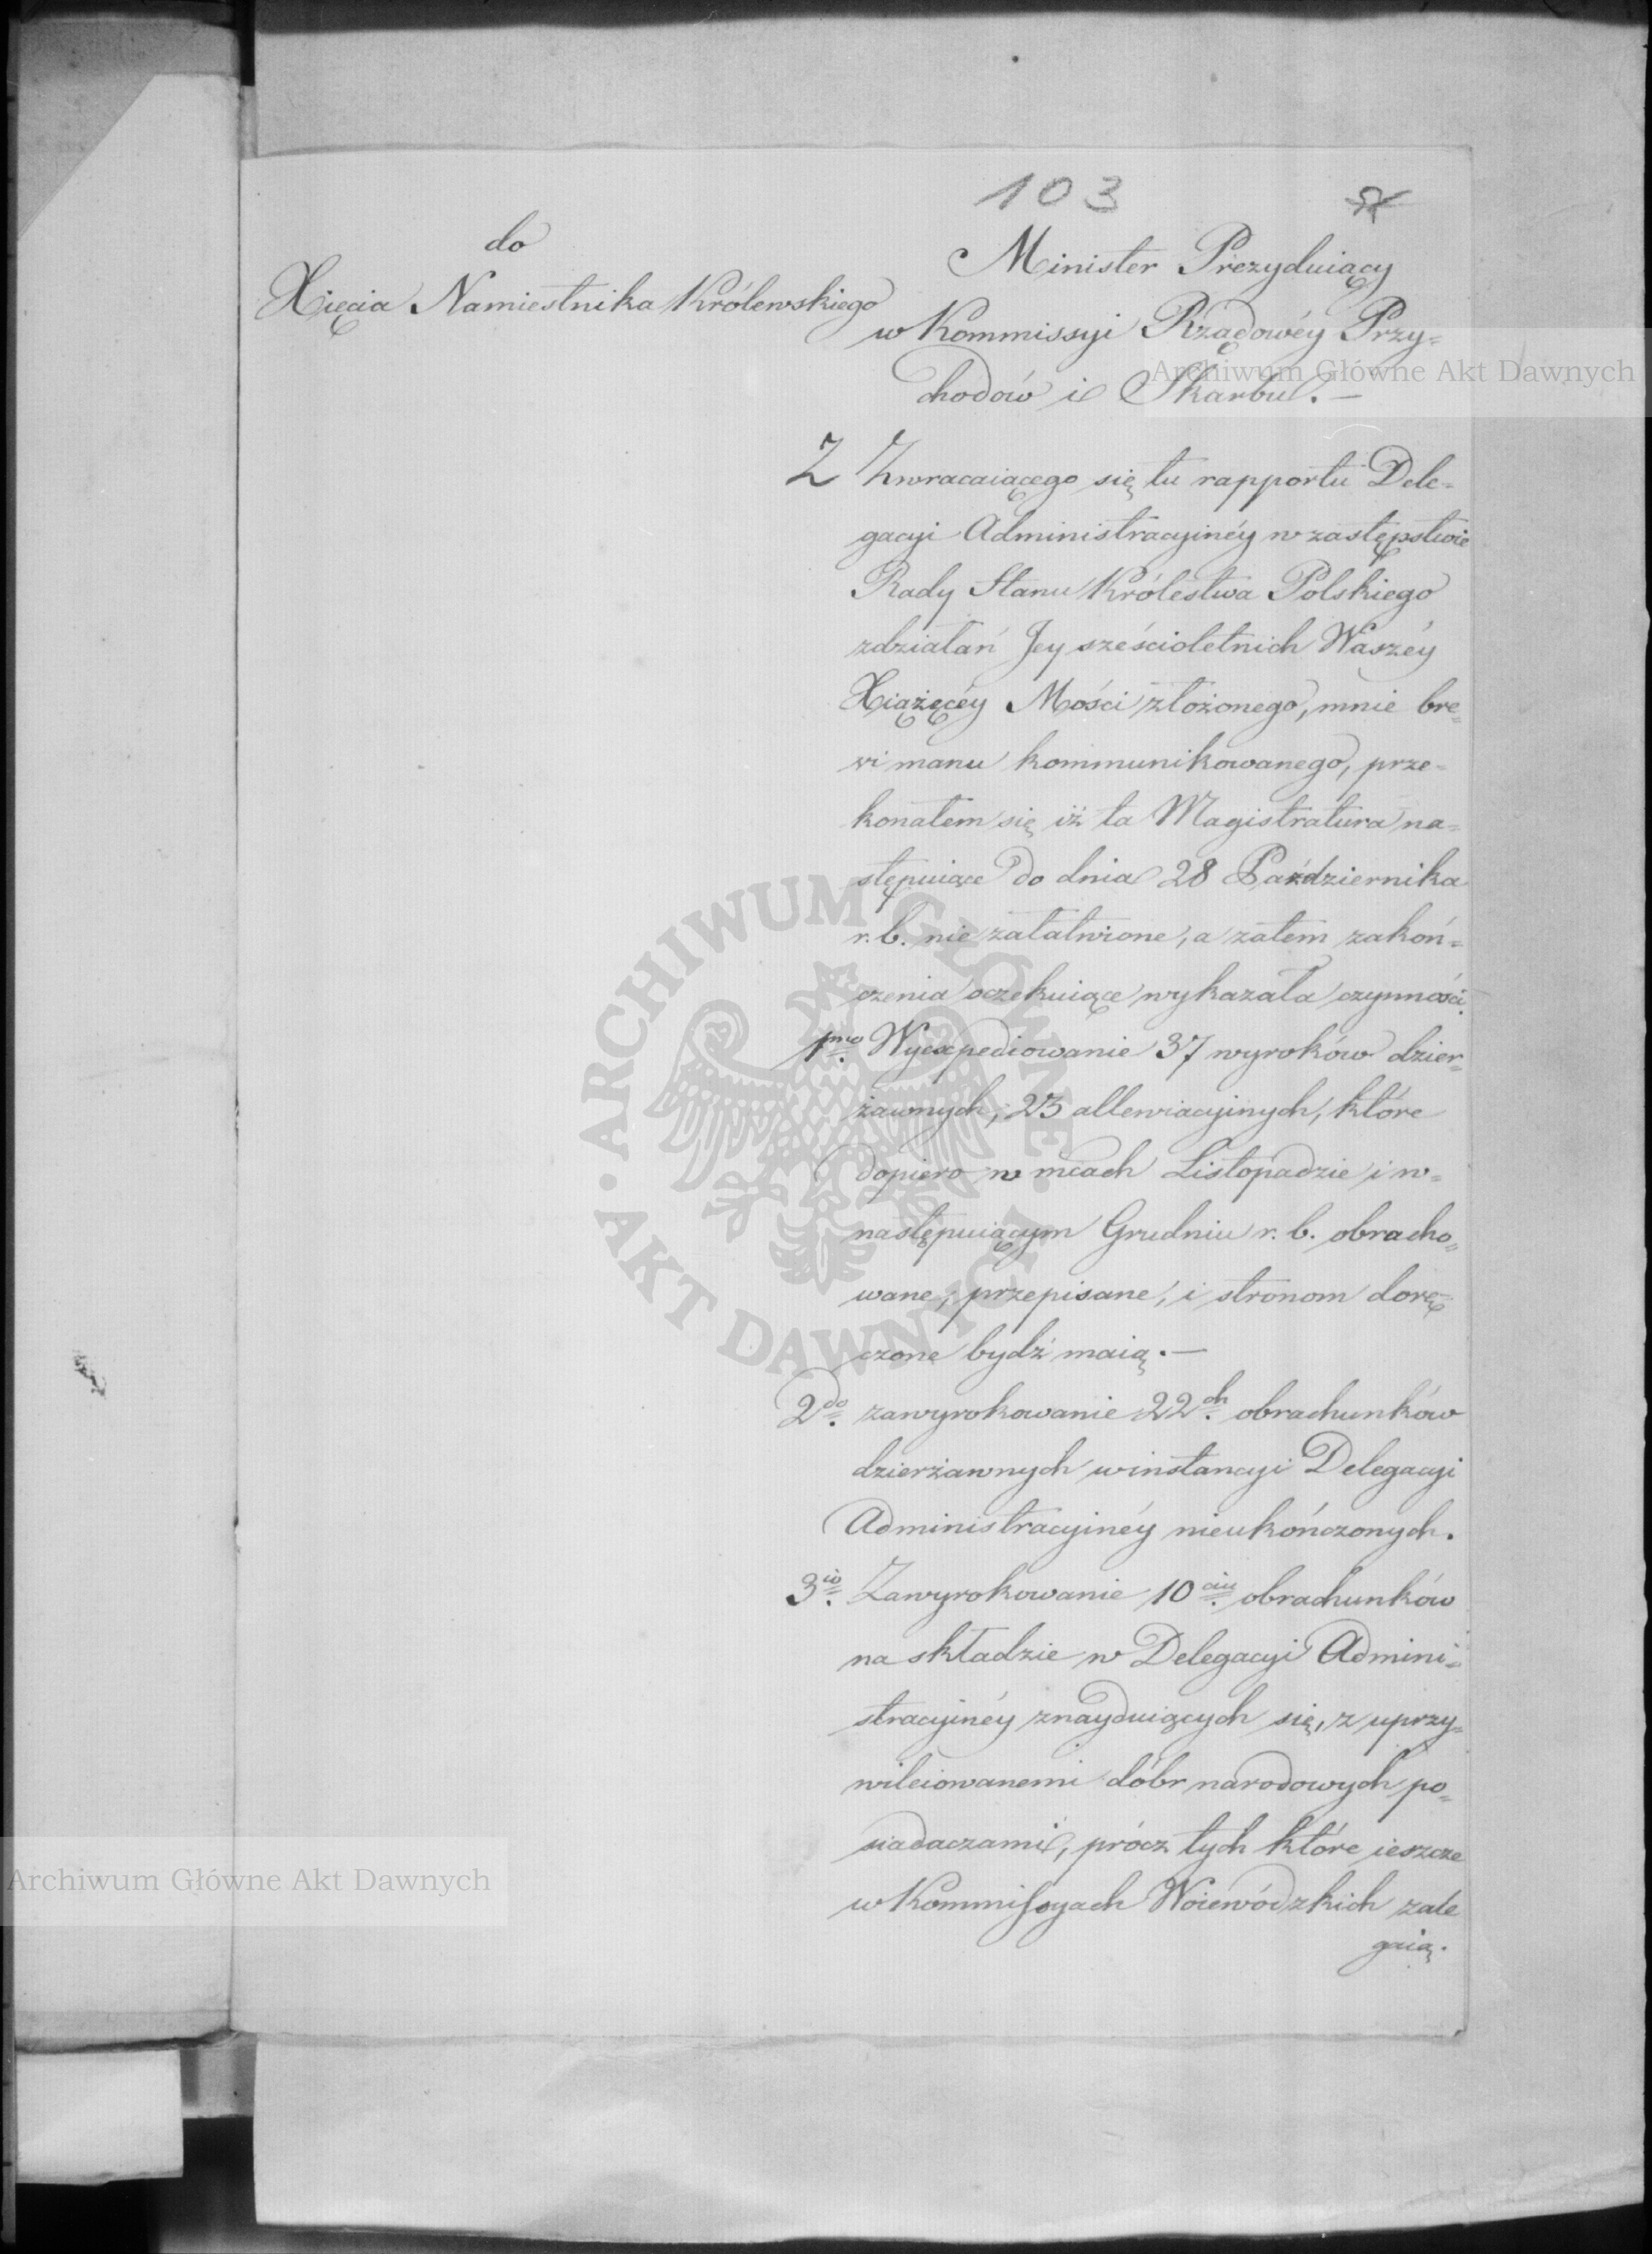 103
do
Xięcia Namiestnika Królewskiego
Minister Prezyduiący
w Kommissyi Rządowéy Przy=
chodów i Skarbu. —
Z Zwracaiącego się tu rapportu Dele=
gacyi Administracyinéy w zastępstwie
Rady Stanu Królestwa Polskiego
zdziałań Jey sześcioletnich Waszéy
Xiążęcéy Mości złożonego, mnie bre=
vi manu kommunikowanego, prze=
konałem się iż ta Magistratura na=
stępuiące do dnia 28 Października
r. b. nie załatwione, a zatem zakoń=
czenia oczekuiące wykazała czynności.
1mo. Wyexpediowanie 37 wyroków dzier=
żawnych, 23 allewiacyinych, które
dopiero w mcach Listopadzie i w=
następuiącym Grudniu r. b. obracho=
wane, przepisane, i stronom dorę=
czone bydź maią. —
2do. zawyrokowanie 22ch. obrachunków
dzierżawnych w instancyi Delegacyi
Administracyinéy nieukończonych.
3io. Zawyrokowanie 10ciu. obrachunków
na składzie w Delegacyi Admini=
stracyinéy znayduiących się, z uprzy=
wileiowanemi dóbr narodowych po=
siadaczami, prócz tych które ieszcze
w Kommissyach Woiewódzkich zale
gaią.
Archiwum Główne Akt Dawnych
ARCHIWUM GŁÓWNE AKT DAWNYCH
Archiwum Główne Akt Dawnych